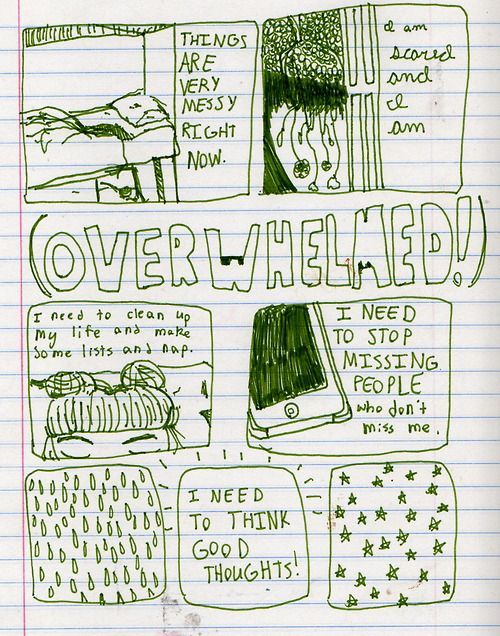 THINGS
ARE
VERY
MESSY
RIGHT
NOW.
I am
scared
and
I
am
(OVERWHELMED!)
I need to clean up
my life and make
some lists and nap.
I NEED
TO STOP
MISSING
PEOPLE
who don't
miss me.
I NEED
TO THINK
GOOD
THOUGHTS!